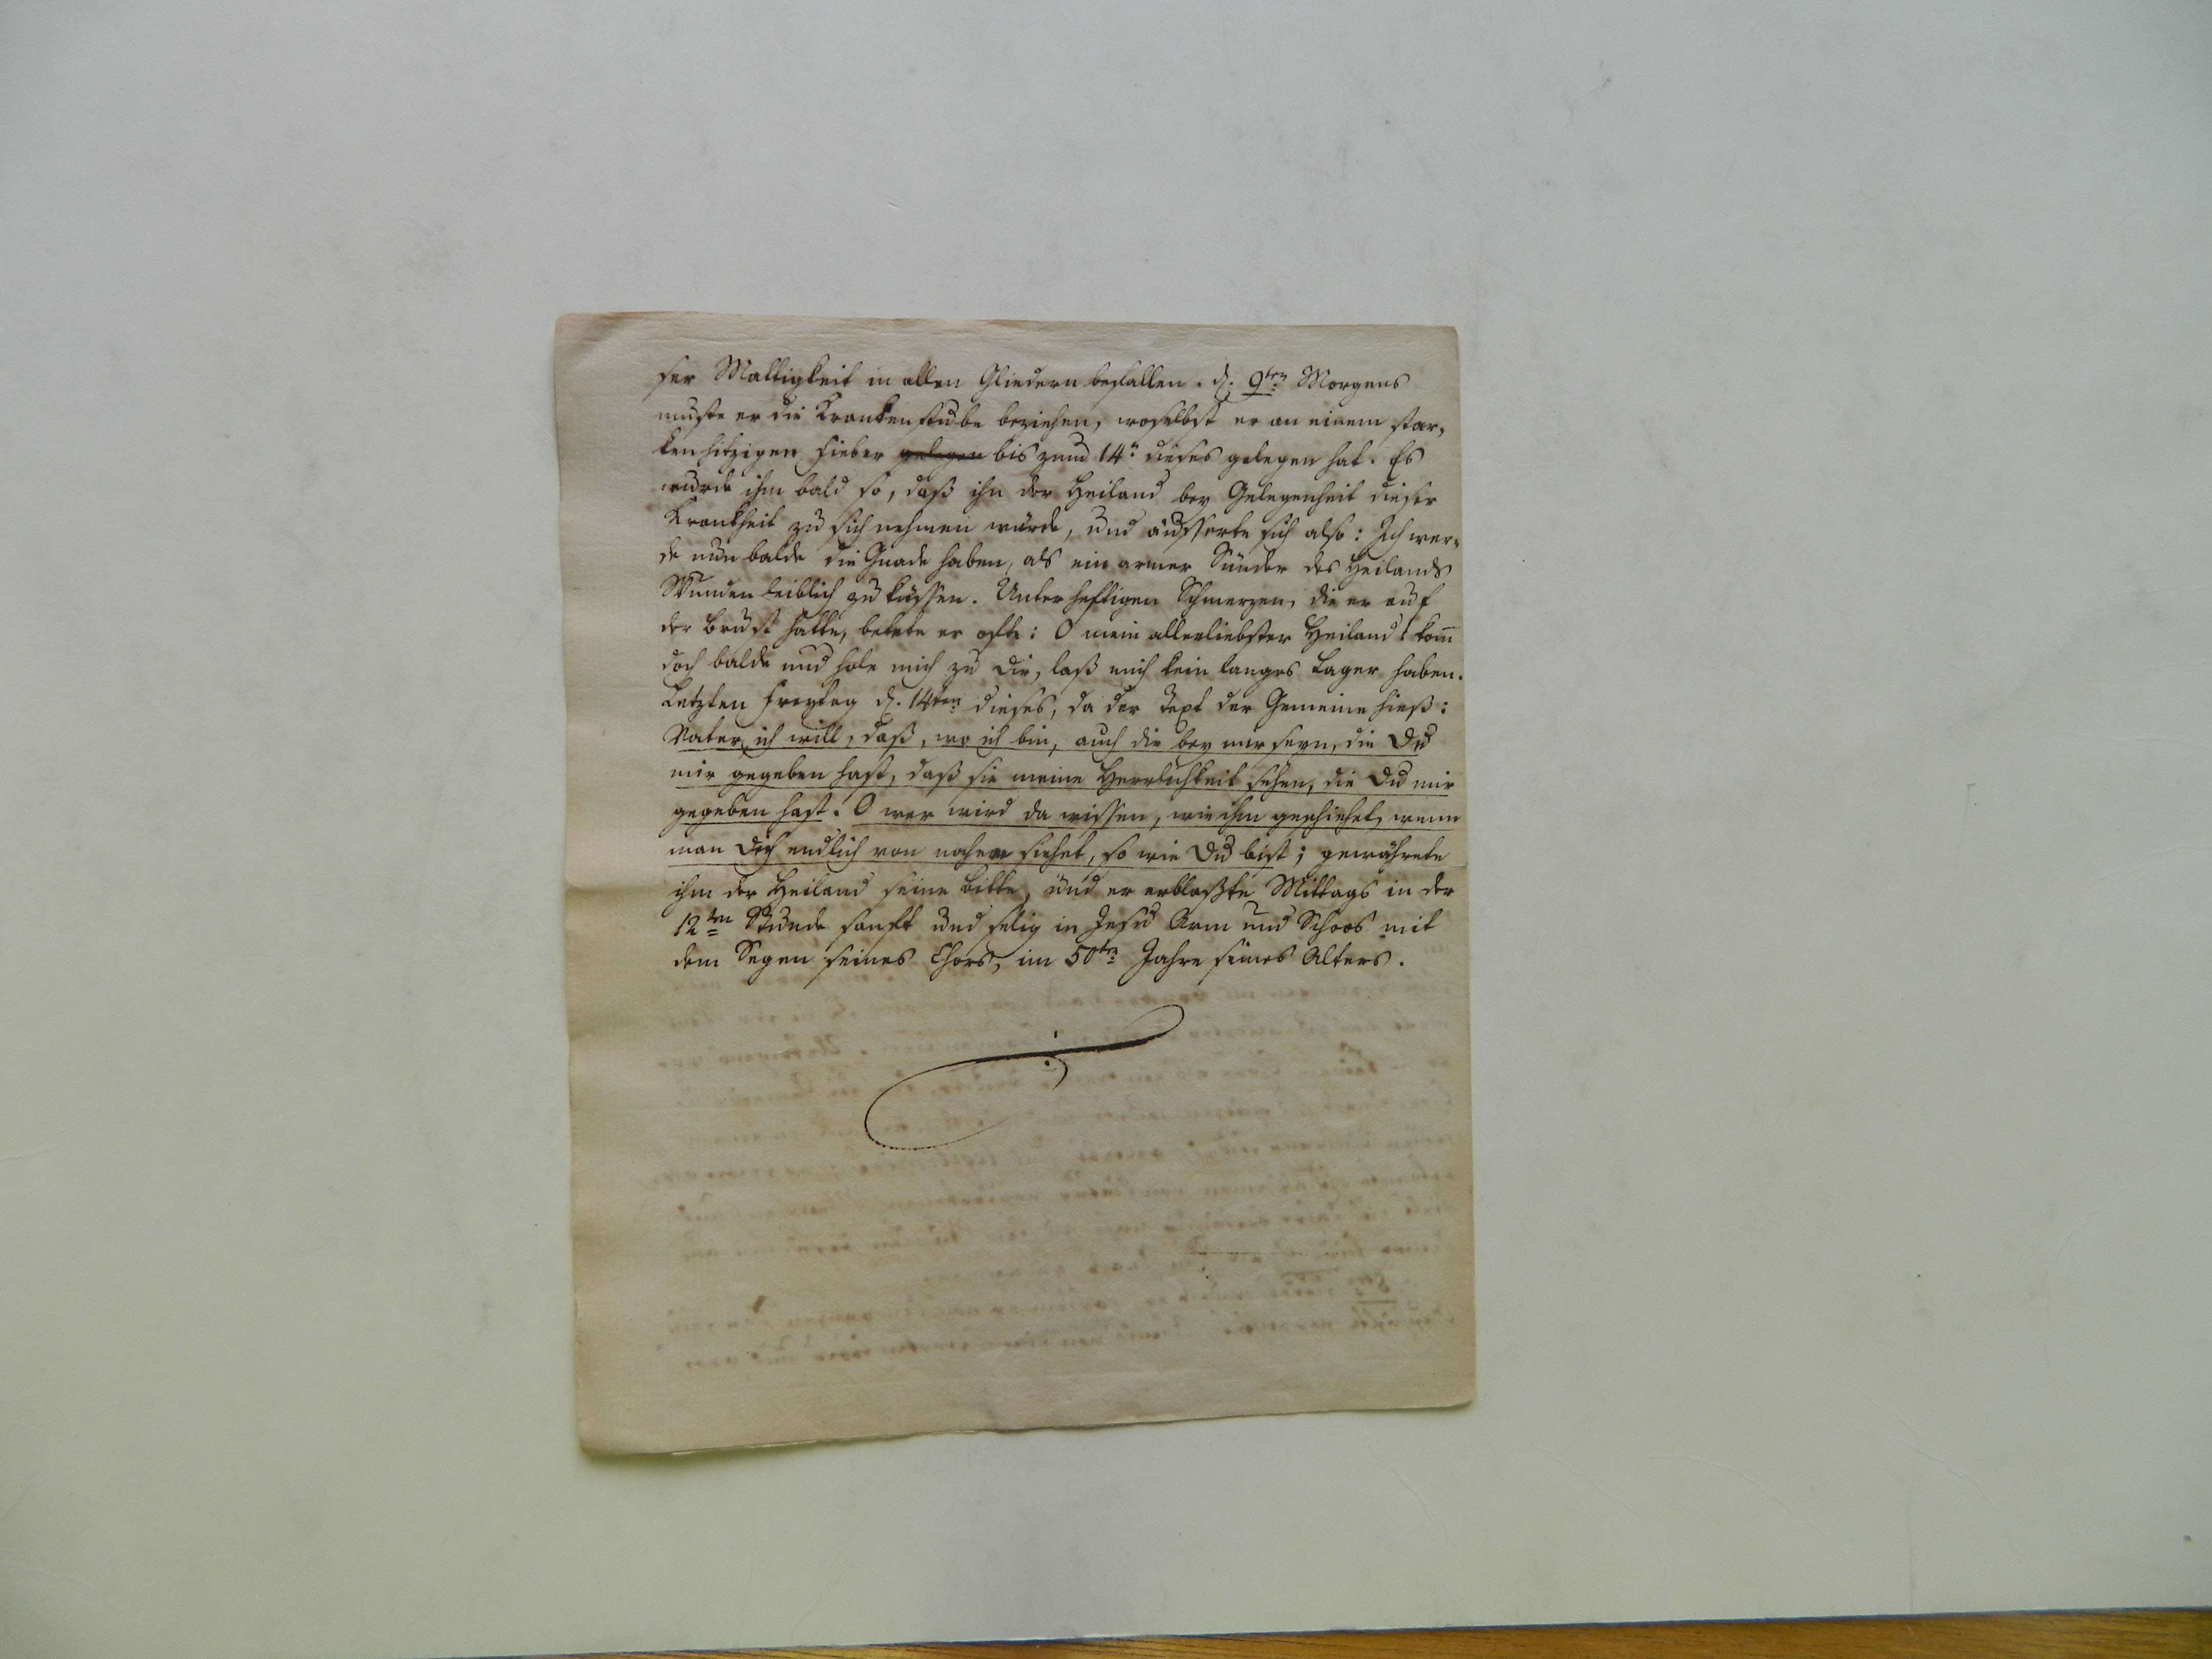 ser Mattigkeit in allen Gliedern befallen. d. 9ten Morgens
mußte er die Krankenstube beziehen, woselbst er an einem star-
ken hitzigen Fieber gelegen bis zum 14n dieses gelegen hat. Es
wurde ihm bald so, daß ihn der Heiland bey Gelegenheit dieser
Krankheit zu sich nehmen würde, und äusserte sich also: Ich wer-
de nun balde die Gnade haben, als ein armer Sünder des Heilands
Wunden leiblich zu küssen. Unter heftigen Schmerzen, die er auf
der Brust hatte, betete er oft: O mein allerliebster Heiland! kom̄
doch balde und hole mich zu Dir, laß mich kein langes Lager haben.
Letzten Freytag d. 14ten dieses, da der Text der Gemeine hieß:
Vater, ich will, daß, wo ich bin, auch die bey mir seyn, die Du
mir gegeben hast, daß sie meine Herrlichkeit sehen, die Du mir
gegeben hast. O wer wird da wissen, wie ihm geschiehet, wenn
man Dich endlich von nahem siehet, so wie Du bist; gewährete
ihm der Heiland seine Bitte, und er erblaßte Mittags in der
12ten Stunde sanft und selig in Jesu Arm und Schoos mit
dem Segen seines Chors, im 50ten Jahre seines Alters.